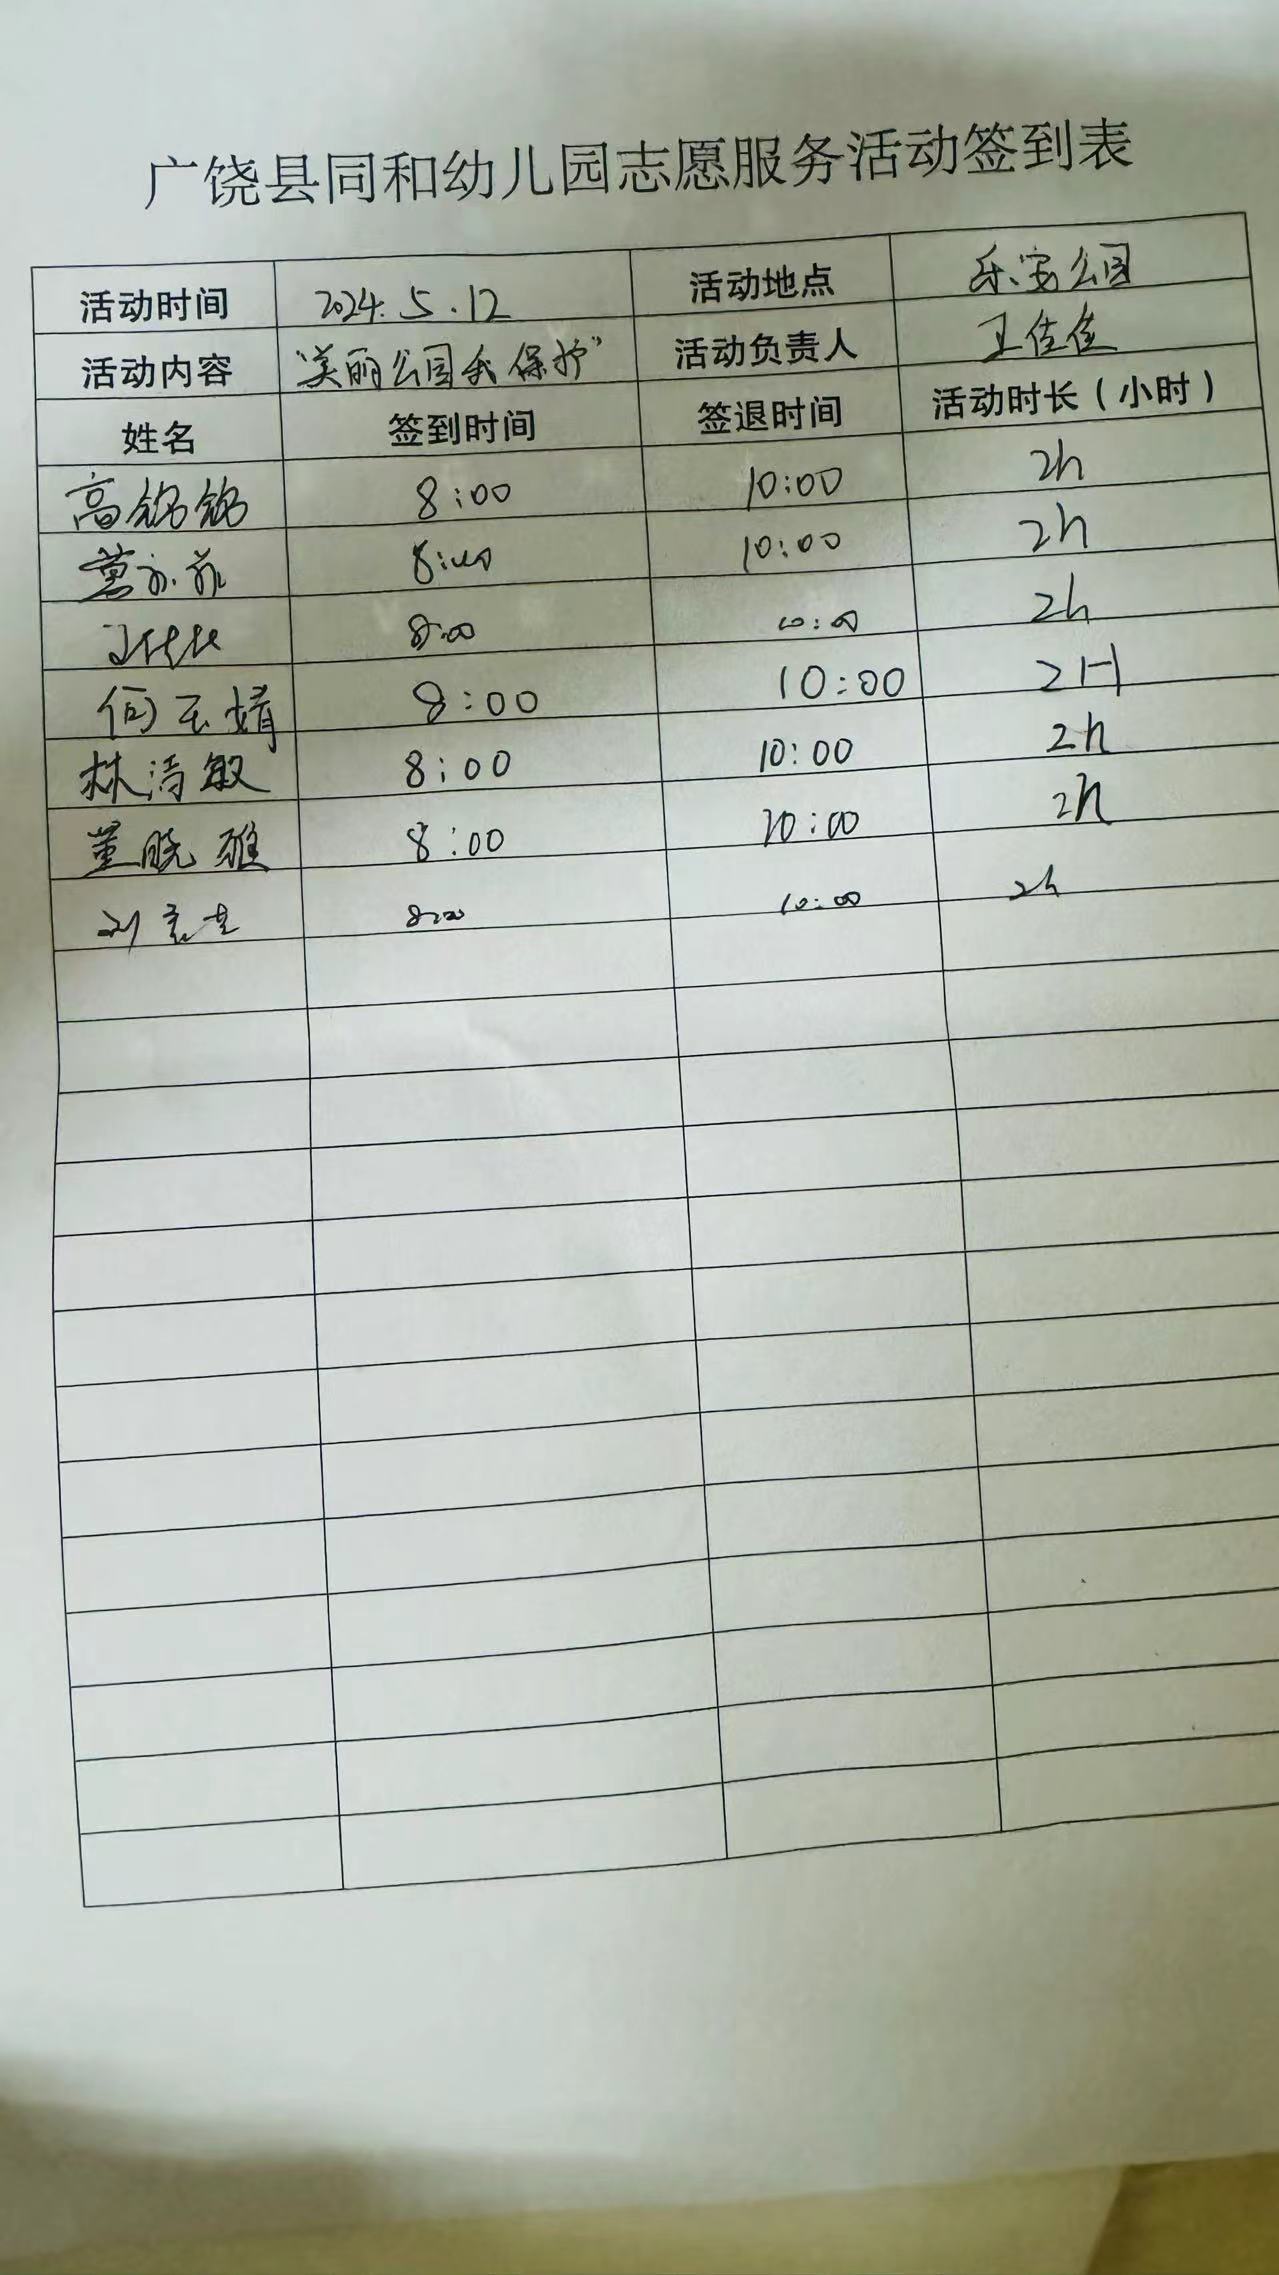 广饶县同和幼儿园志愿服务活动签到表
活动时间 2024.5.12 活动地点 乐安公园
活动内容 “美丽公园我保护” 活动负责人 王佳佳
姓名 签到时间 签退时间 活动时长（小时）
高铭铭 8:00 10:00 2h
8:00 10:00 2h
王佳佳 8:00 10:00 2h
何玉婧 8:00 10:00 2H
林清敏 8:00 10:00 2h
董晓雅 8:00 10:00 2h
刘 8:00 10:00 2h